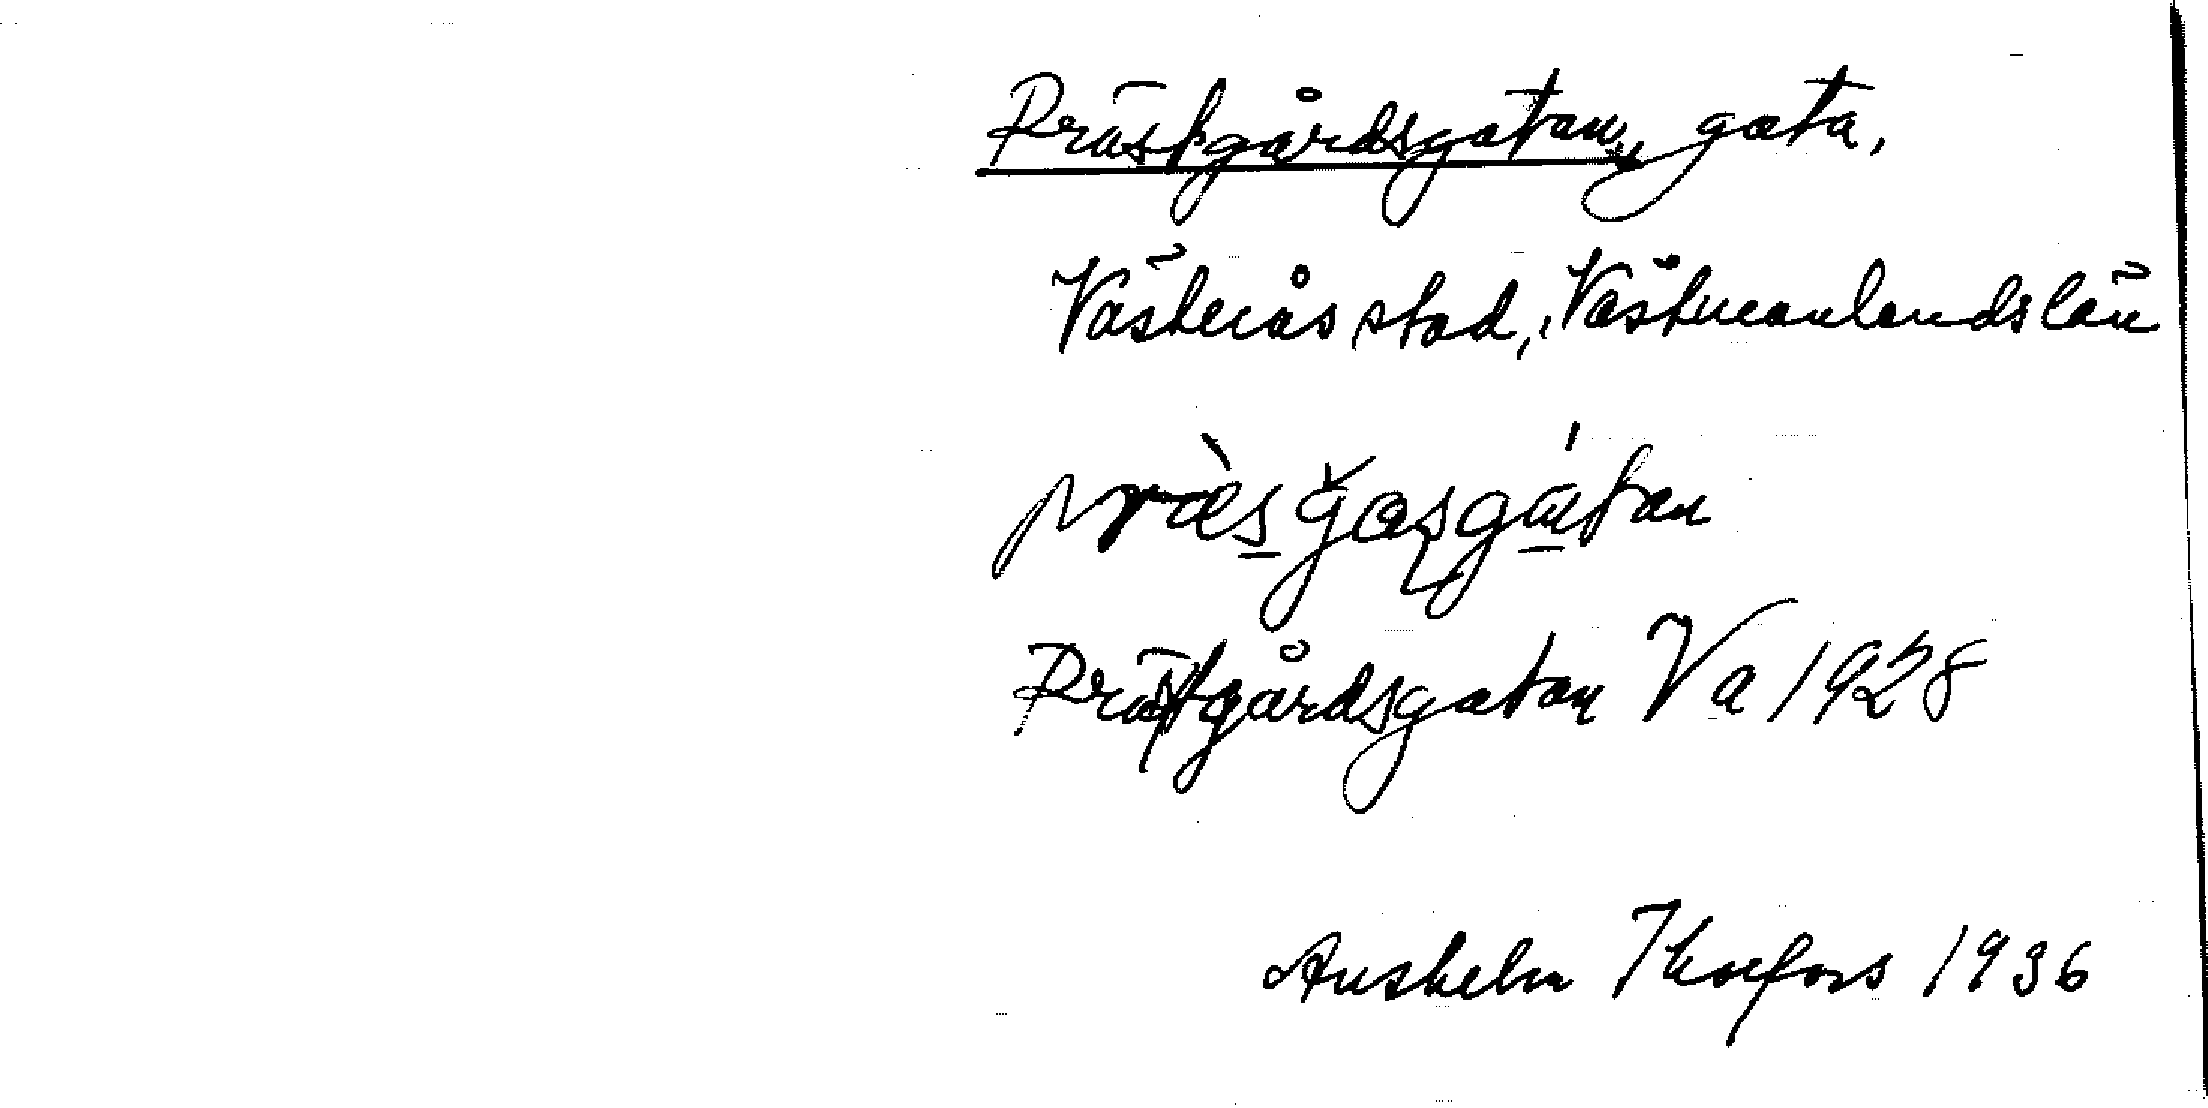 Prästgårdsgatan, gata,
Västerås stad, Västmanlands län
Prästgårdsgatan Va 1928
Anshelm Thorfors 1936